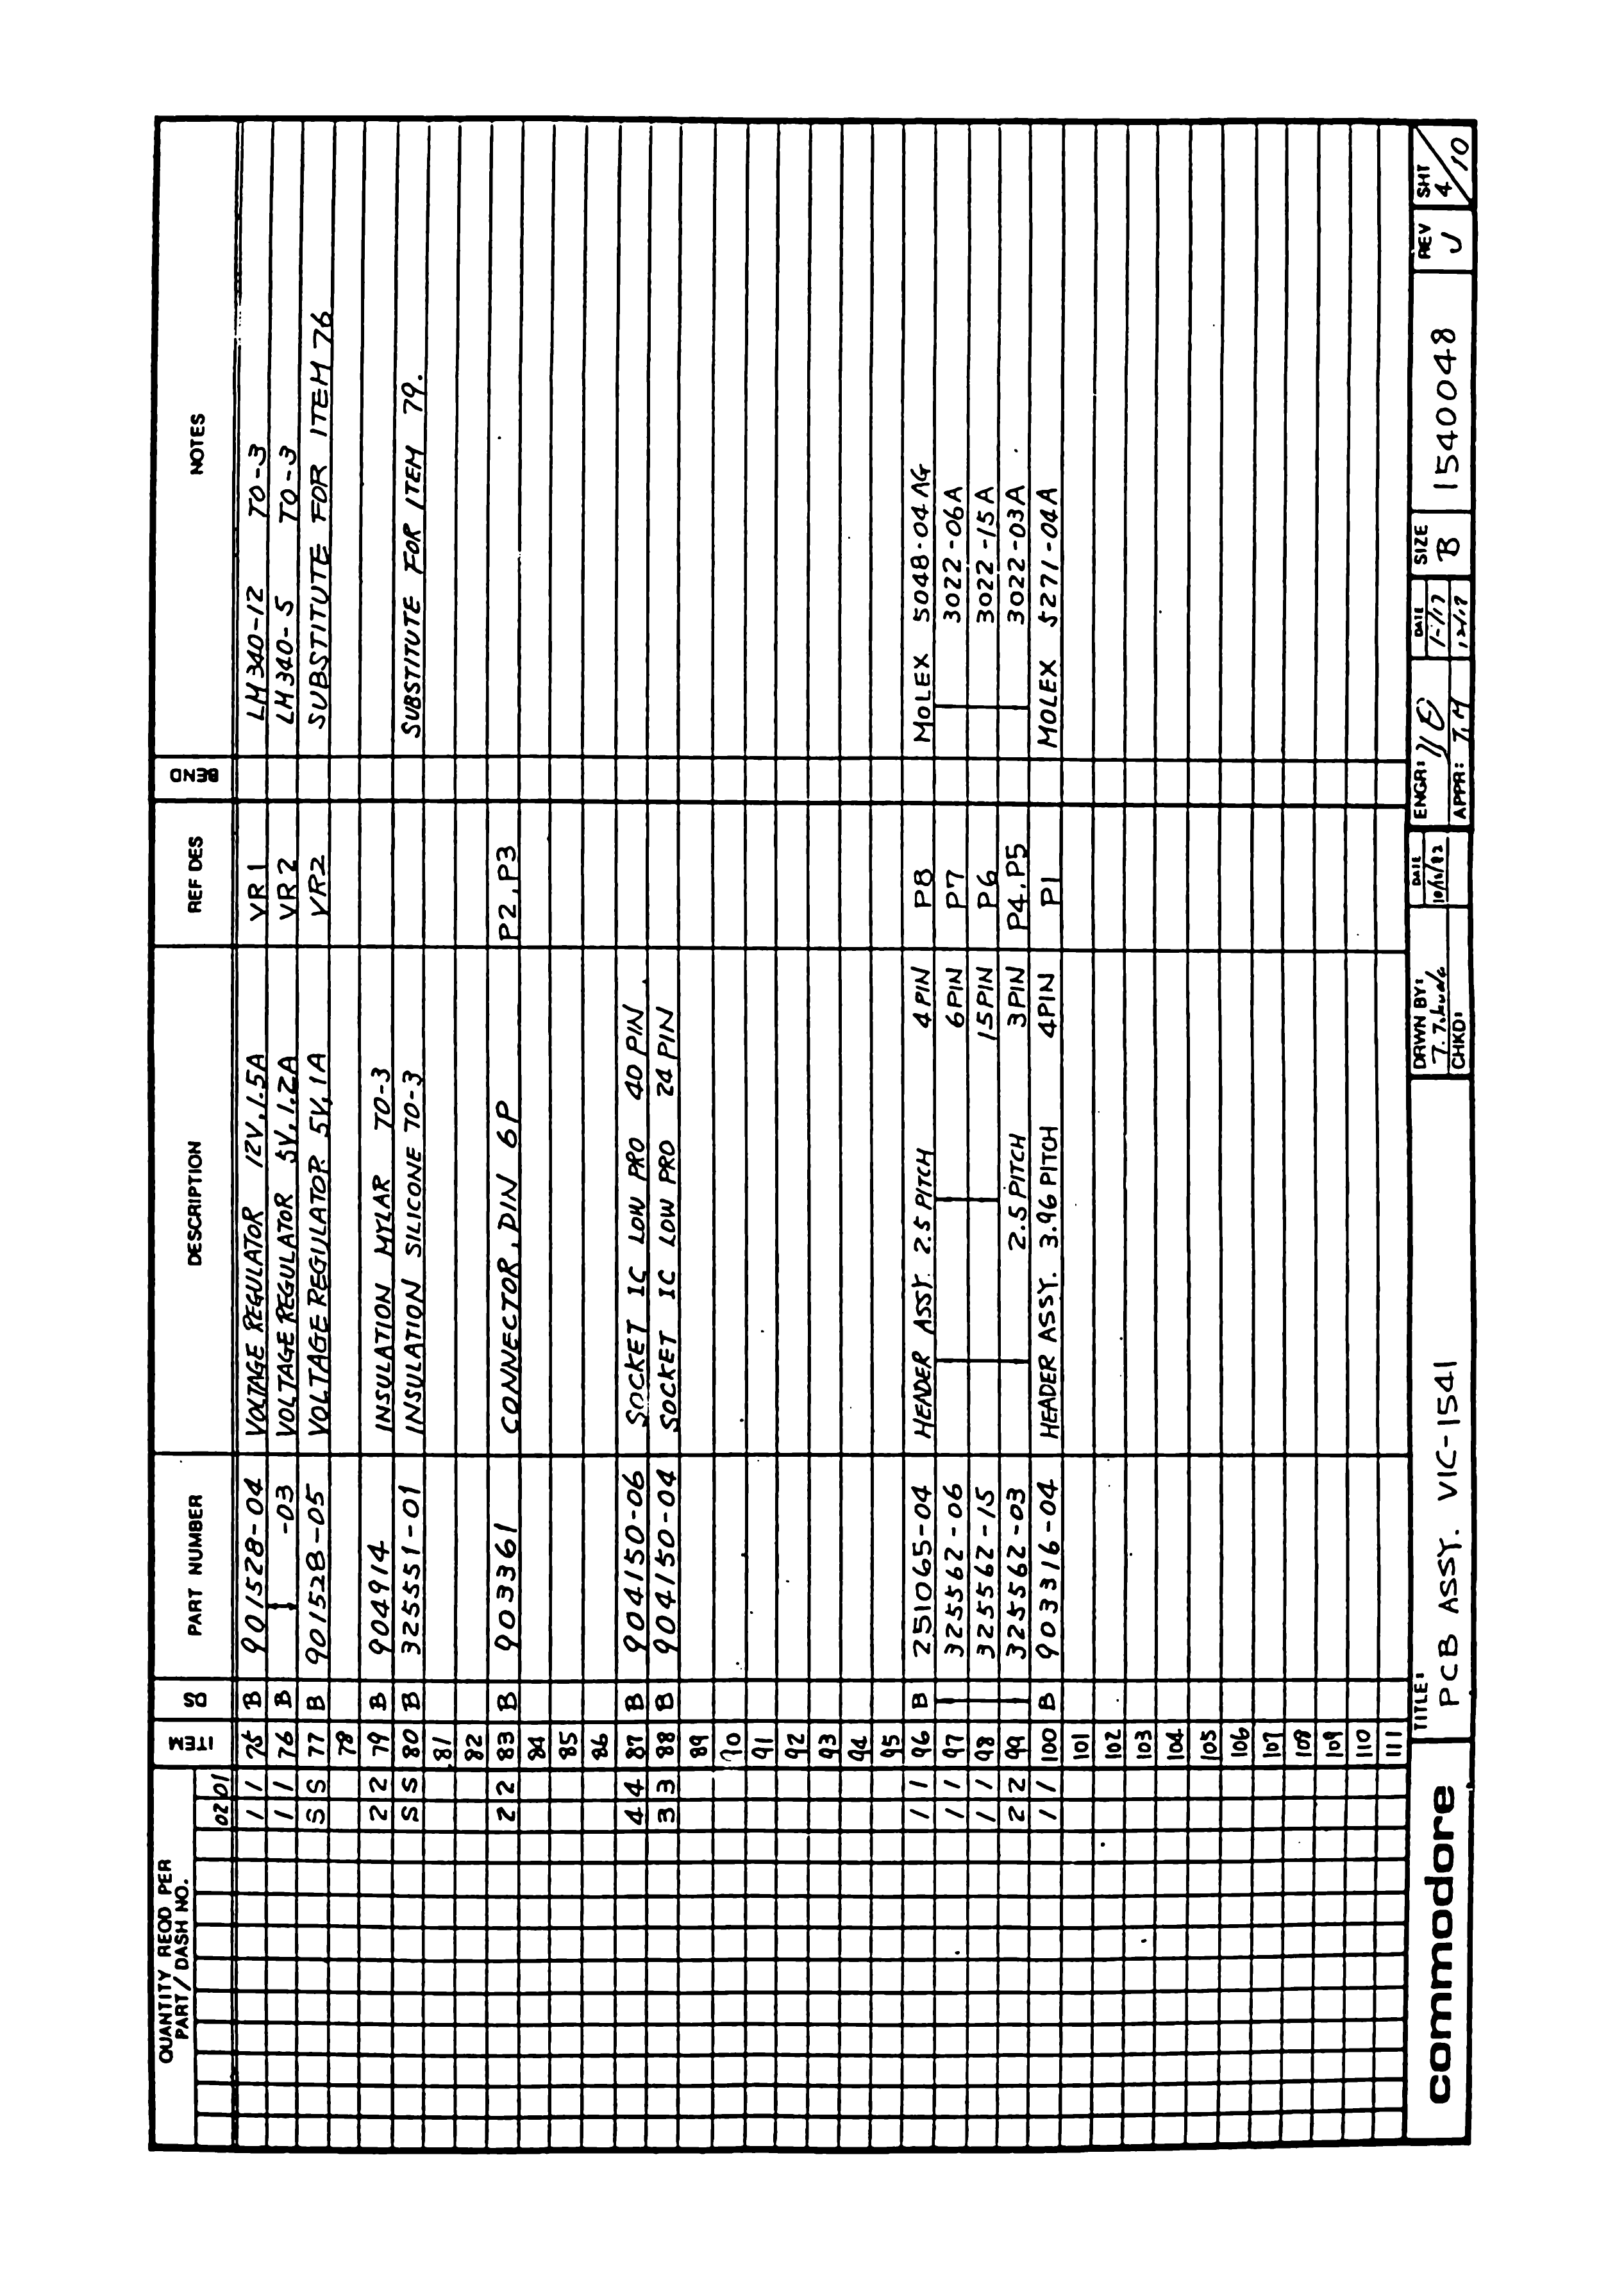 QUANTITY REQD PER PART/DASH NO. ITEM DS PART NUMBER DESCRIPTION REF DES BEND NOTES
02 01
1 1 75 B 901528-04 VOLTAGE REGULATOR 12V,1.5A VR1 LM340-12 TO-3
1 1 76 B -03 VOLTAGE REGULATOR 5V,1.2A VR2 LM340-5 TO-3
S S 77 B 901528-05 VOLTAGE REGULATOR 5V,1A VR2 SUBSTITUTE FOR ITEM 76
78
2 2 79 B 904914 INSULATION MYLAR TO-3
S S 80 B 325551-01 INSULATION SILICONE TO-3 SUBSTITUTE FOR ITEM 79.
81
82
2 2 83 B 903361 CONNECTOR, DIN 6P P2,P3
84
85
86
4 4 87 B 904150-06 SOCKET IC LOW PRO 40 PIN
3 3 88 B 904150-04 SOCKET IC LOW PRO 24 PIN
89
90
91
92
93
94
95
1 1 96 B 251065-04 HEADER ASSY. 2.5 PITCH 4 PIN P8 MOLEX 5048-04AG
1 1 97 325562-06 6PIN P7 3022-06A
1 1 98 325562-15 15PIN P6 3022-15A
2 2 99 325562-03 2.5 PITCH 3PIN P4,P5 3022-03A
1 1 100 B 903316-04 HEADER ASSY. 3.96 PITCH 4PIN P1 MOLEX 5271-04A
101
102
103
104
105
106
107
108
109
110
111
commodore
TITLE:
PCB ASSY. VIC-1541
DRWN BY:
CHKD:
DATE
ENGR:
APPR: T.M
DATE
SIZE
B
1540048
REV
J
SHT
4/10